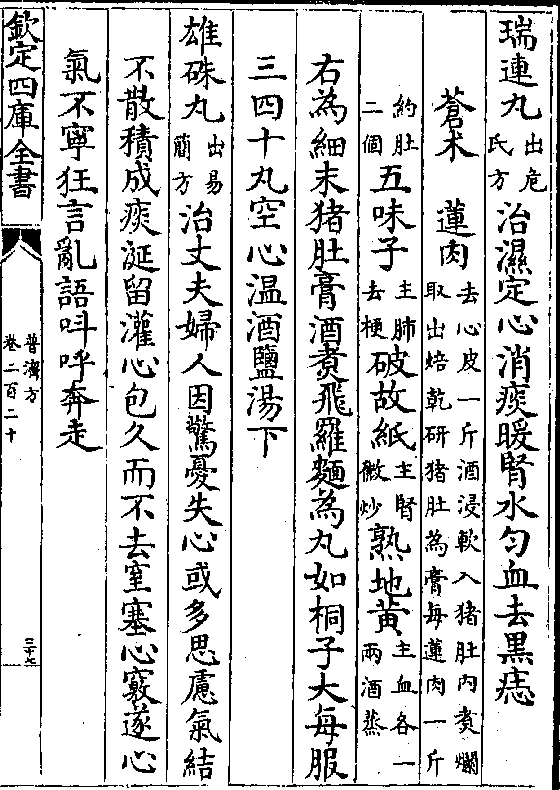 瑞連丸出危氏方治濕定心消痰暖腎水勻血去黑痣
蒼术 蓮肉去心皮一斤酒浸軟入猪肚内煑爛取出焙乾研猪肚為膏每蓮肉一斤
約肚二個五味子主肺去梗破故紙主腎微炒熟地黄主血各一兩酒蒸
右為細末猪肚膏酒煑飛羅麵為丸如桐子大每服
三四十丸空心温酒鹽湯下
雄硃丸出易簡方治丈夫婦人因驚憂失心或多思慮氣結
不散積成痰涎留灌心包久而不去窒塞心竅遂心
氣不寧狂言亂語呌呼奔走
欽定四庫全書
普濟方
卷二百二十
二十七